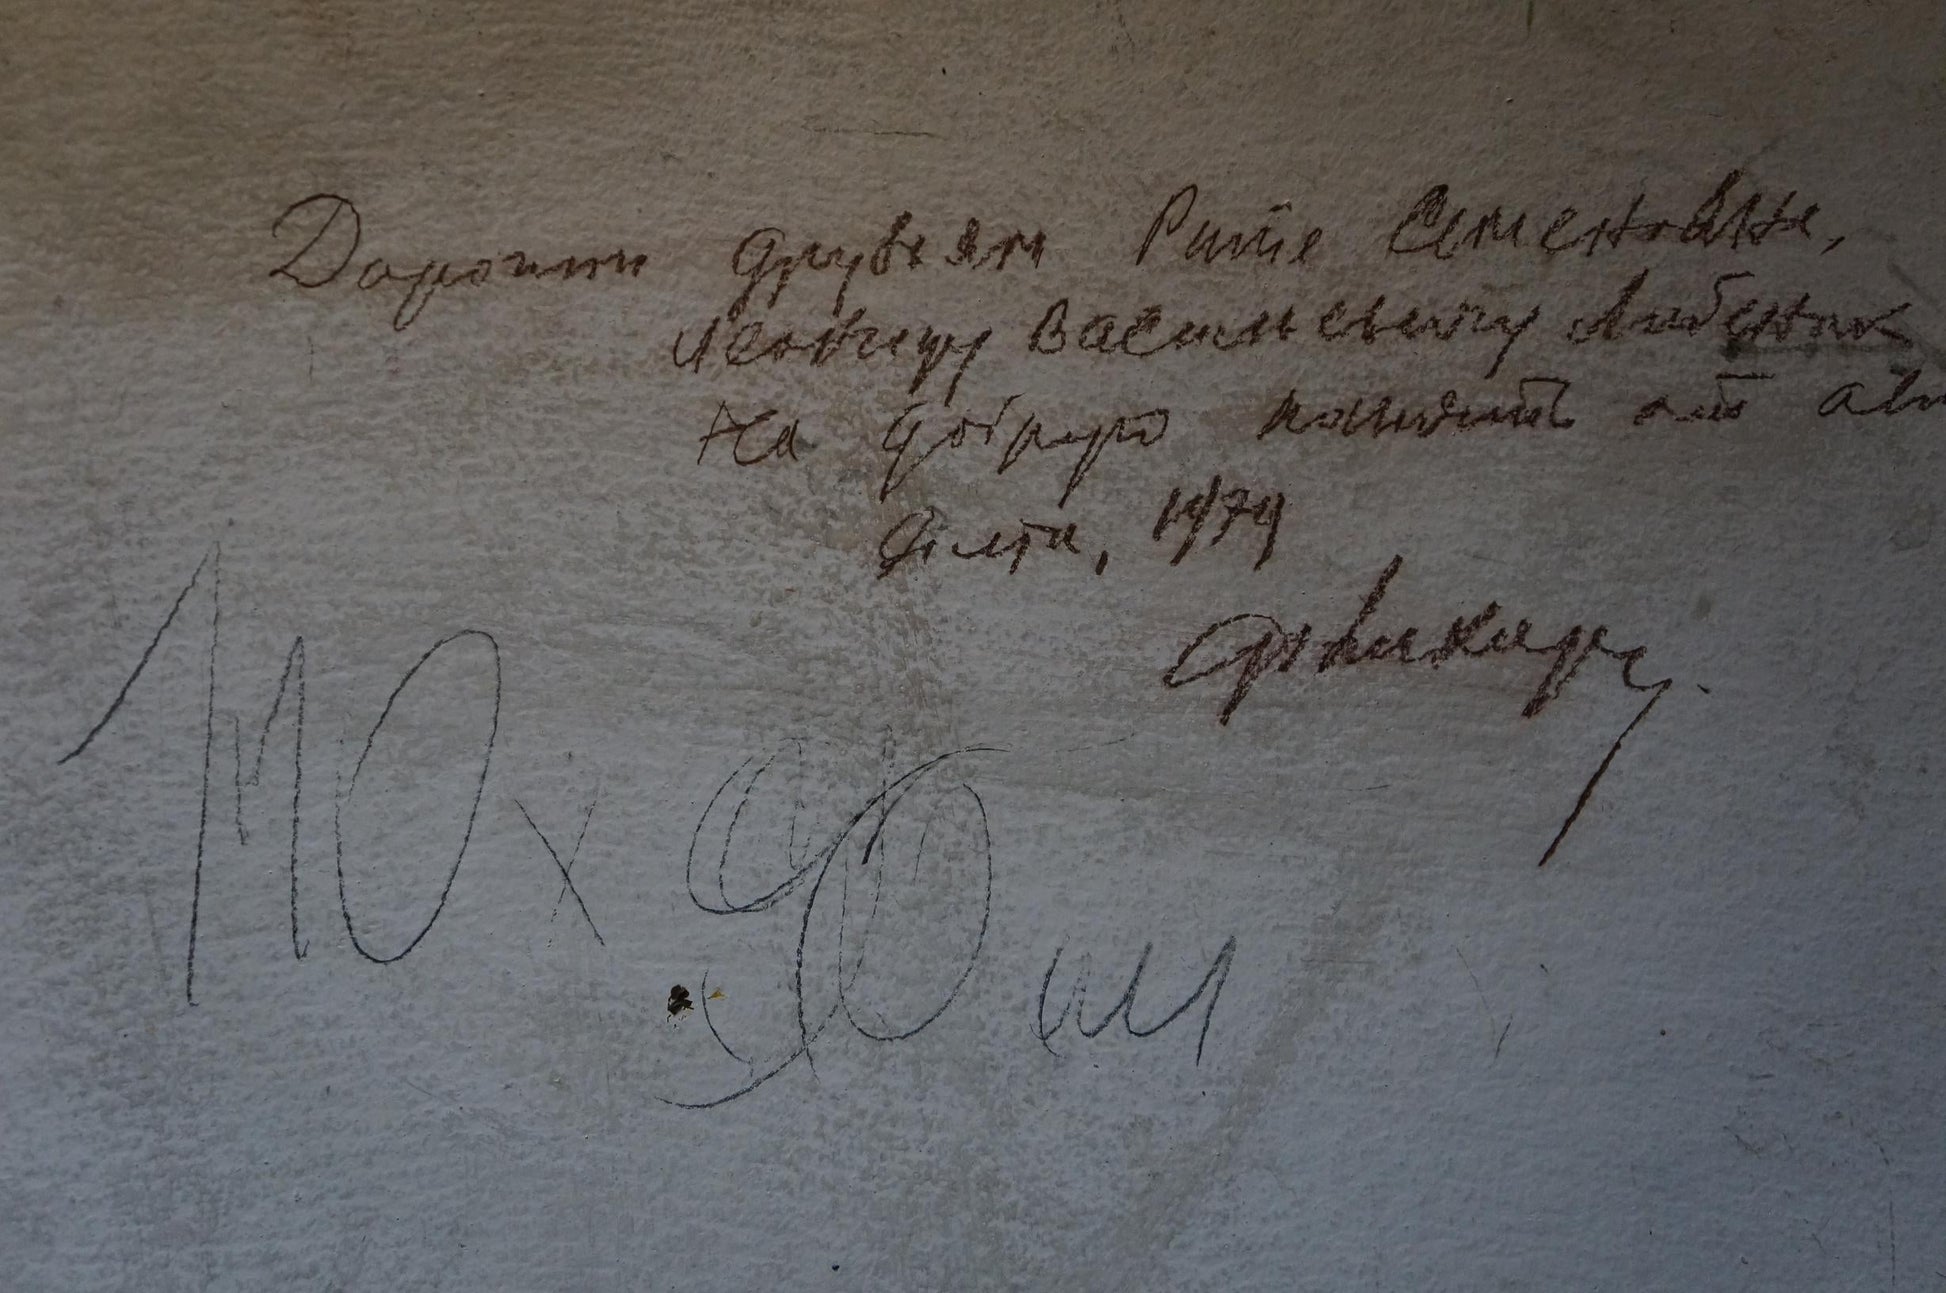 Дорогим друзьям Рите Семеновне,
Леониду Васильевичу
на добрую память от авт
Ялта, 1979
110 x 90 см